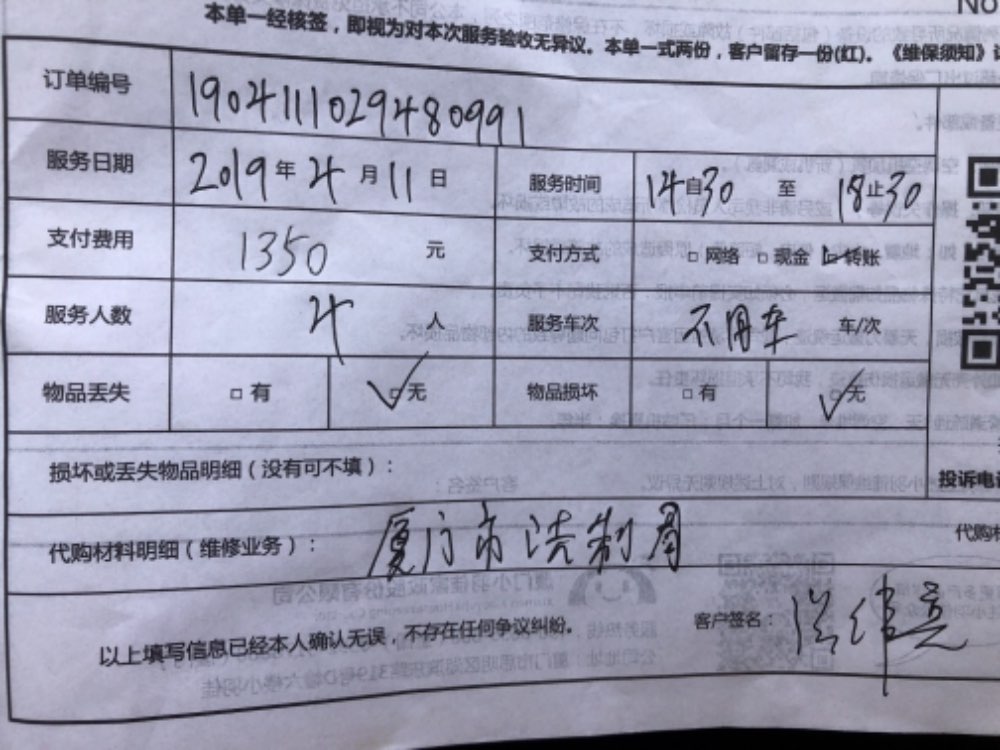 No
本单一经核签，即视为对本次服务验收无异议。本单一式两份，客户留存一份(红)。《维保须知》
订单编号 19041110294480991
服务日期 2019年4月11日 服务时间 14自30 至 18止30
支付费用 1350 元 支付方式 □ 网络 □ 现金 ☑ 转账
服务人数 4 人 服务车次 不用车 车/次
物品丢失 □ 有 ☑ 无 物品损坏 □ 有 ☑ 无
损坏或丢失物品明细（没有可不填）：
投诉电话
代购材料明细（维修业务）： 厦门市法制局
代购材
客户签名：
以上填写信息已经本人确认无误，不存在任何争议纠纷。